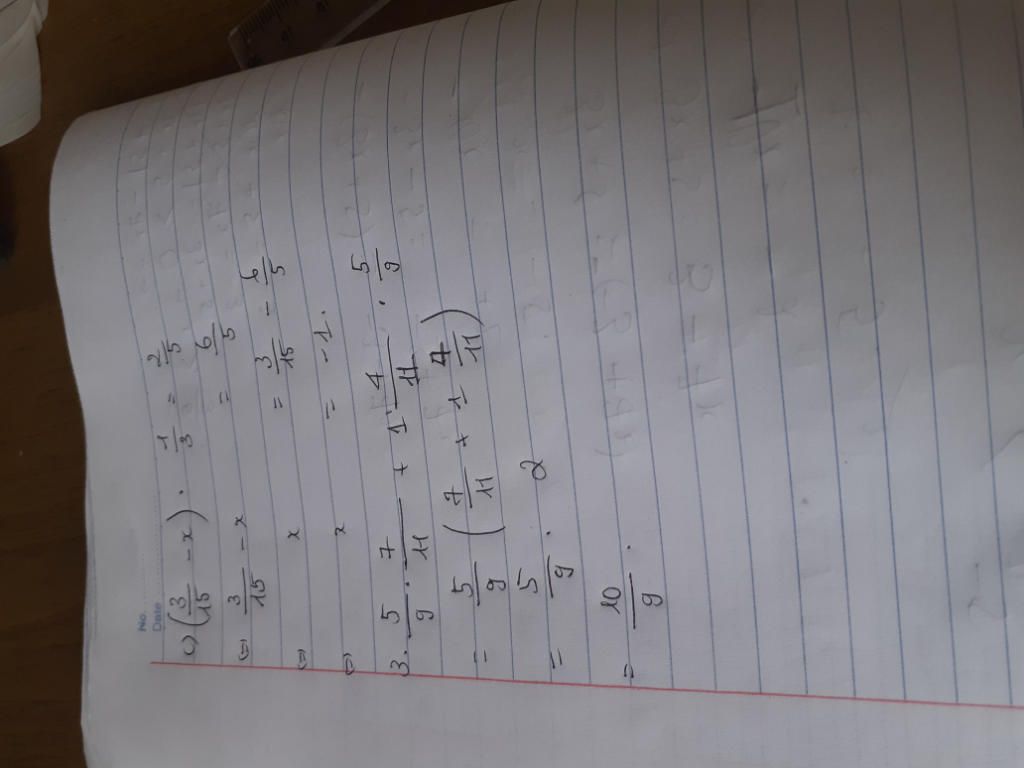 No.
Date
c) (3/15 - x) . 1/3 = 2/5
⇔ 3/15 - x = 6/5
⇔ x = 3/15 - 6/5
⇔ x = -1.
3. 5/9 . 7/11 + 1 . 4/11 . 5/9
= 5/9 (7/11 + 1 + 4/11)
= 5/9 . 2
= 10/9 .